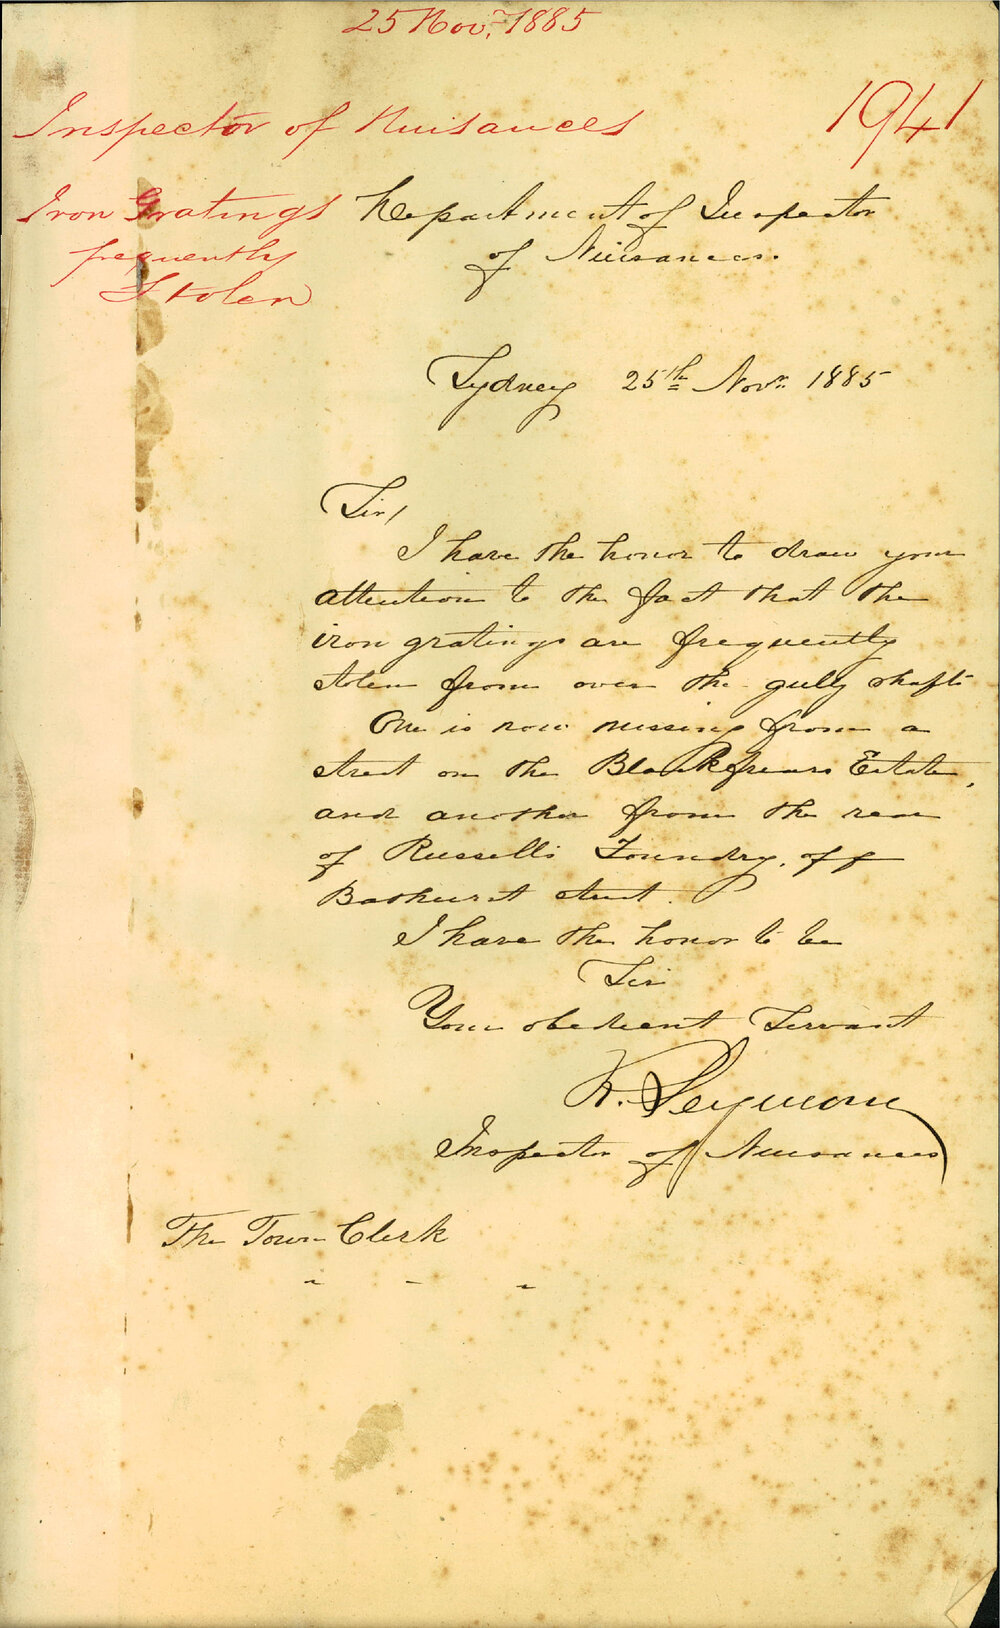 25 Nov. 1885
Inspector of Nuisances
1941
Iron Gratings
frequently
Stolen
Department of Inspector
of Nuisances.
Sydney 25th Novr. 1885
Sir/
I have the honor to draw your
attention to the fact that the
iron gratings are frequently
stolen from over the gully shafts
One is now missing from a
street on the Blackfriars Estate,
and another from the rear
of Russell's Foundry, off
Bathurst street.
I have the honor to be
Sir
Your obedient Servant
R. Seymour
Inspector of Nuisances
The Town Clerk
" " "